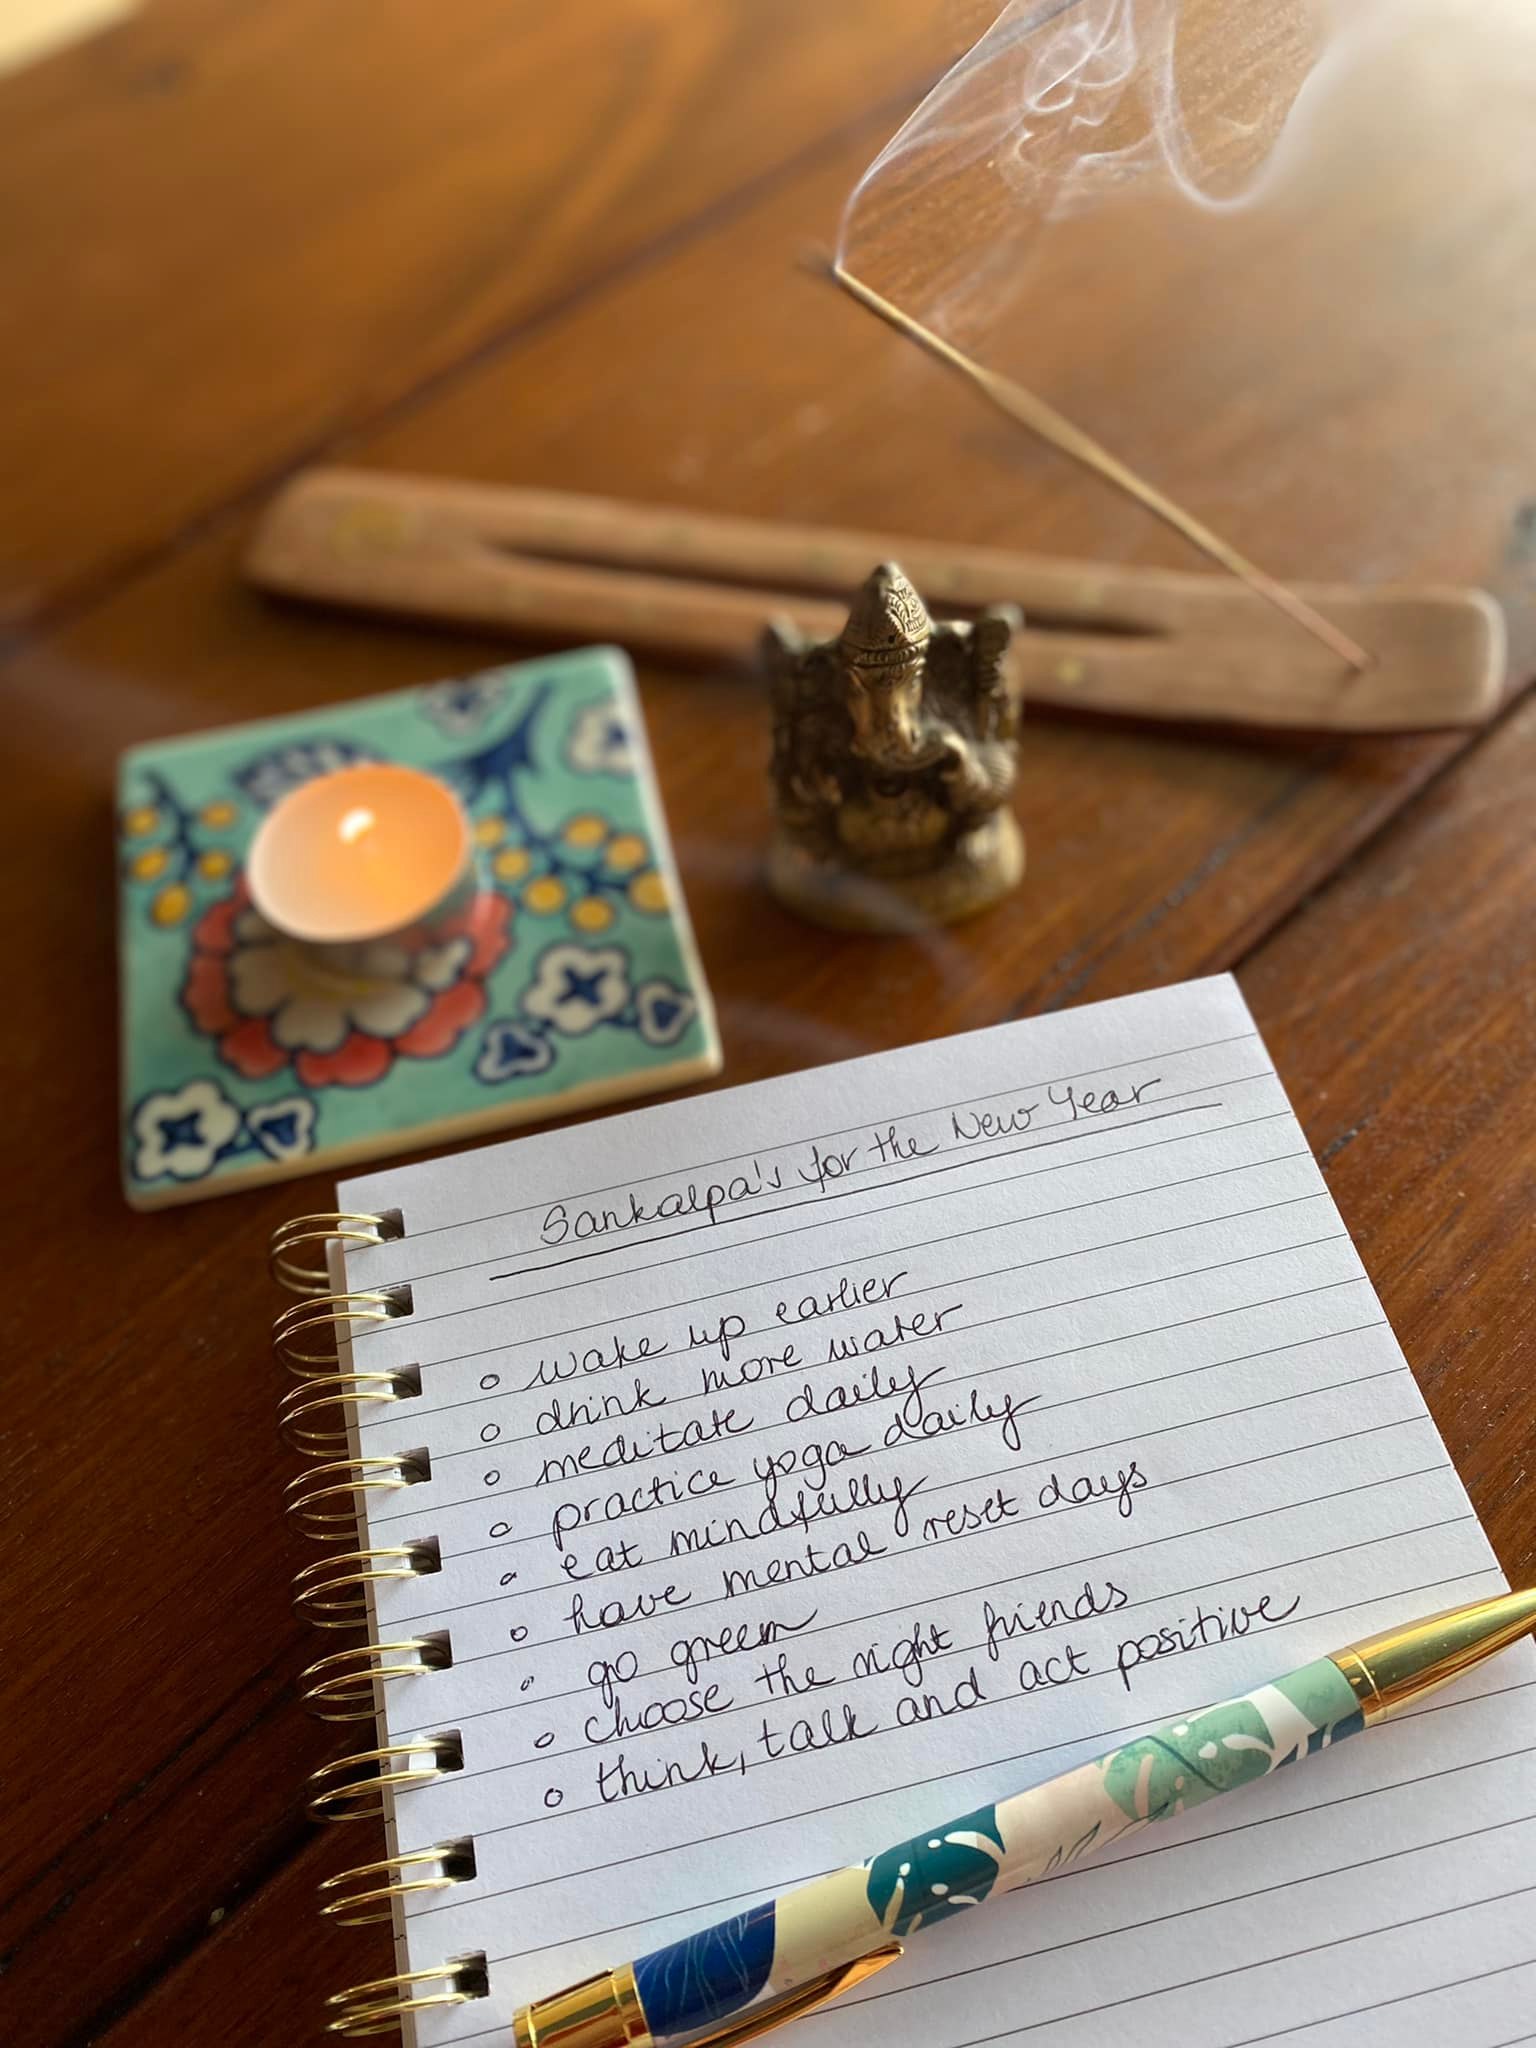 Sankalpa's for the New Year
o wake up earlier
o drink more water
o meditate daily
o practice yoga daily
o eat mindfully
o have mental reset days
o go green
o choose the right friends
o think, talk and act positive